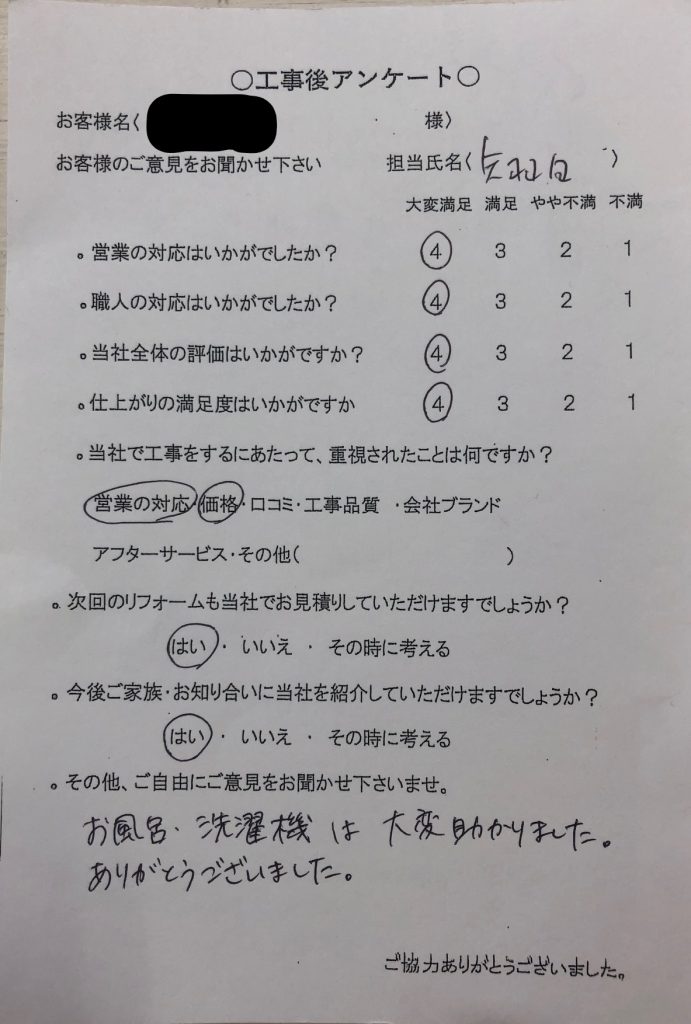 ○工事後アンケート○
お客様名( 様)
お客様のご意見をお聞かせ下さい 担当氏名( )
大変満足 満足 やや不満 不満
。営業の対応はいかがでしたか? 4 3 2 1
。職人の対応はいかがでしたか? 4 3 2 1
。当社全体の評価はいかがですか? 4 3 2 1
。仕上がりの満足度はいかがですか 4 3 2 1
。当社で工事をするにあたって、重視されたことは何ですか?
営業の対応・価格・口コミ・工事品質 ・会社ブランド
アフターサービス・その他( )
。次回のリフォームも当社でお見積りしていただけますでしょうか?
はい ・ いいえ ・ その時に考える
。今後ご家族・お知り合いに当社を紹介していただけますでしょうか?
はい ・ いいえ ・ その時に考える
。その他、ご自由にご意見をお聞かせ下さいませ。
お風呂・洗濯機は 大変助かりました。
ありがとうございました。
ご協力ありがとうございました。